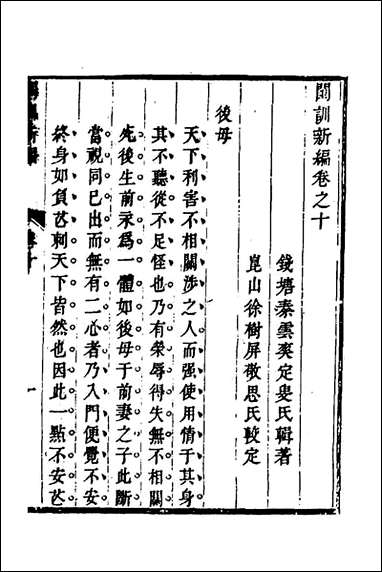 閨訓新編卷之十
錢塘秦雲爽定叟氏輯著
崑山徐樹屏敬思氏較定
後母
天下利害不相關涉之人而强使用情于其身
其不聽從不足怪也乃有榮辱得失無不相關
死後生前永爲一體如後母于前妻之子此斷
當視同已出而無有二心者乃入門便覺不安
終身如負芒刺天下皆然也因此一點不安芒